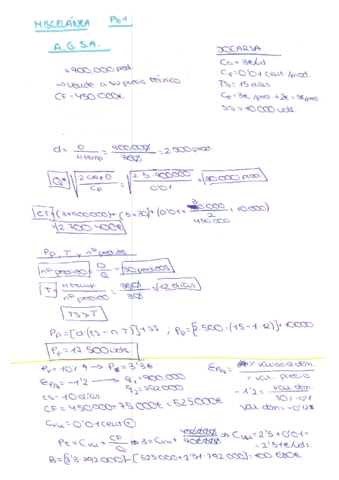 MISCELÁNEA P01
A.G.S.A.
= 900.000 prod.
→ vende a su precio técnico
CF = 450.000€
DOCARSA
Cu = 3€/ud
Cp = 0'01 cent/prod.
TS = 15 días
SS = 10.000 uds.
d = D / N temp = 900.000 / 360 = 2500 prod.
Q* = √(2·Ce·D / Cp) = = 30.000 prod
CT =
= 2.700.400€
Pp, T y nº pedido
nº pedido = D/Q = 30 pedidos
T = N temp / nº pedidos = 360 / 30 = 12 días
TS > T
Pp = [d·(ts - n·T)] + SS ; Pp = [2.500·(15-1·12)] + 10000
Pp = 17.500 uds.
Pv = 10% → Pv = 3'3€
Ep/q = -1'2 → q1 = 900.000
q2 = 792000
ts = 10 días
CF = 450000 + 75000€ = 525000€
Cvu = 0'01 cent
Ep/q = % variación dem. / % var. precio
-1'2 = var. dem / 10%
var. dem = -0'12%
Pt = Cvu + CF/Q → 3 = Cvu + 450.000/900.000 → Cvu = 2'5 + 0'01 =
= 2'51€/uds.
B = [3'3·792000] - [525000 + 2'51·792000] = 100.680€